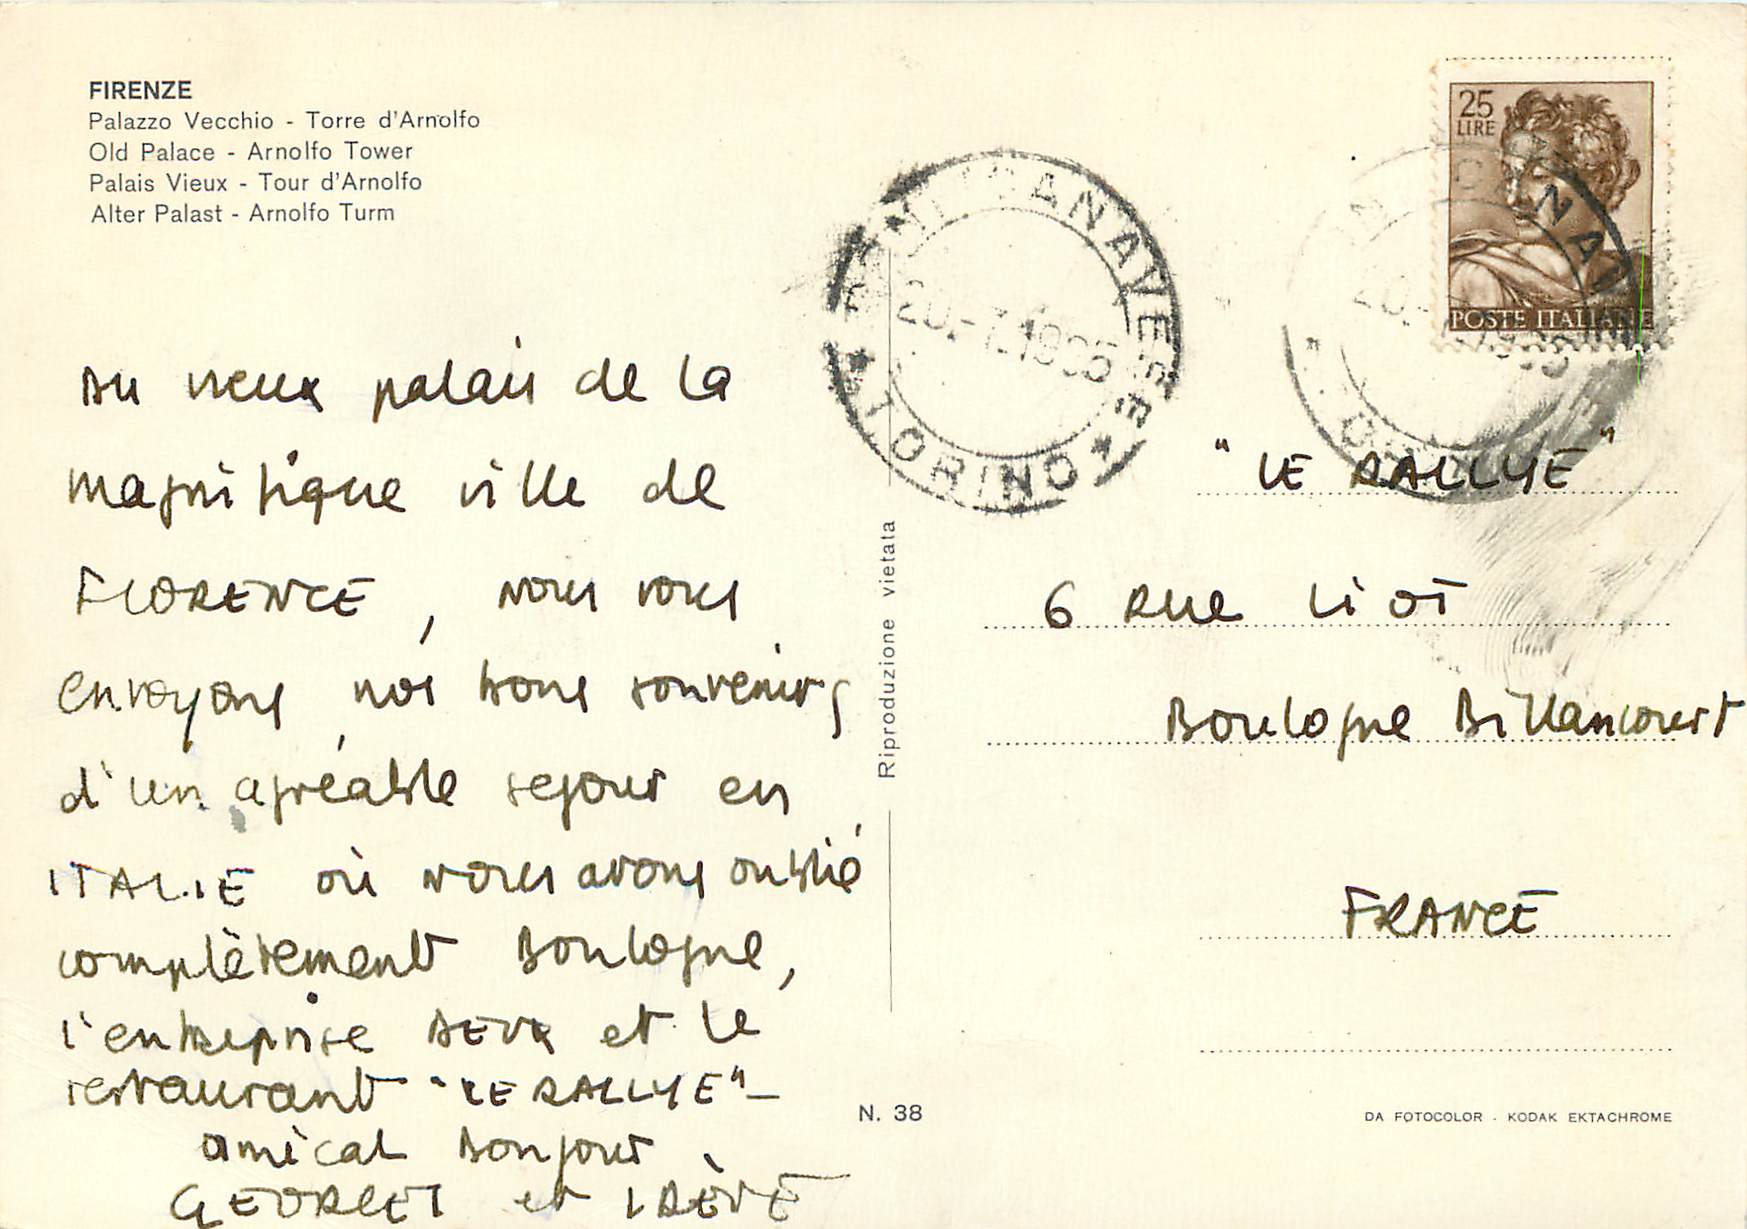 FIRENZE
Palazzo Vecchio - Torre d'Arnolfo
Old Palace - Arnolfo Tower
Palais Vieux - Tour d'Arnolfo
Alter Palast - Arnolfo Turm
Au vieux palais de la
magnifique ville de
FLORENCE, nous vous
envoyons nos bons souvenirs
d'un agréable sejour en
ITALIE où nous avons oublié
complètement Boulogne,
l'entreprise et le
restaurant "LE RALLYE" -
amical Bonjour.
GEORGES et IRÈNE
Riproduzione vietata
N. 38
CANAVESE
* TORINO *
20.-7.1965
25
LIRE
POSTE ITALIANE
"LE RALLYE"
6 RUE Liot
Boulogne Billancourt
FRANCE
DA FOTOCOLOR - KODAK EKTACHROME